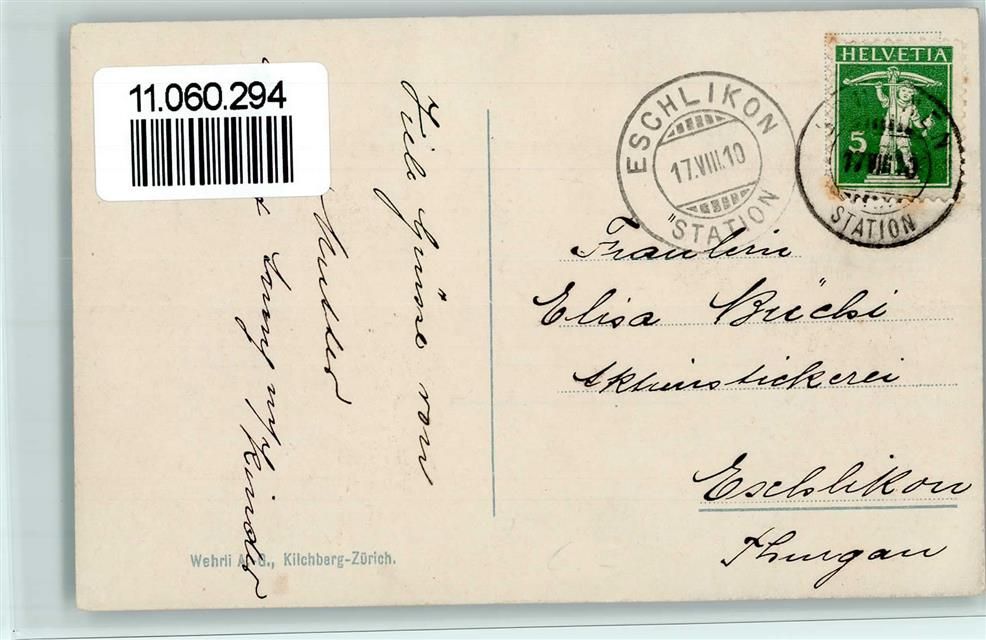 11.060.294
Viele Grüsse von
Mutter
Kinder
Wehrli A. G., Kilchberg-Zürich.
ESCHLIKON
17.VIII.10
"STATION
HELVETIA
5
17.VIII.10
STATION
Fräulein
Elisa Büchi
Aktienstickerei
Eschlikon
Thurgau